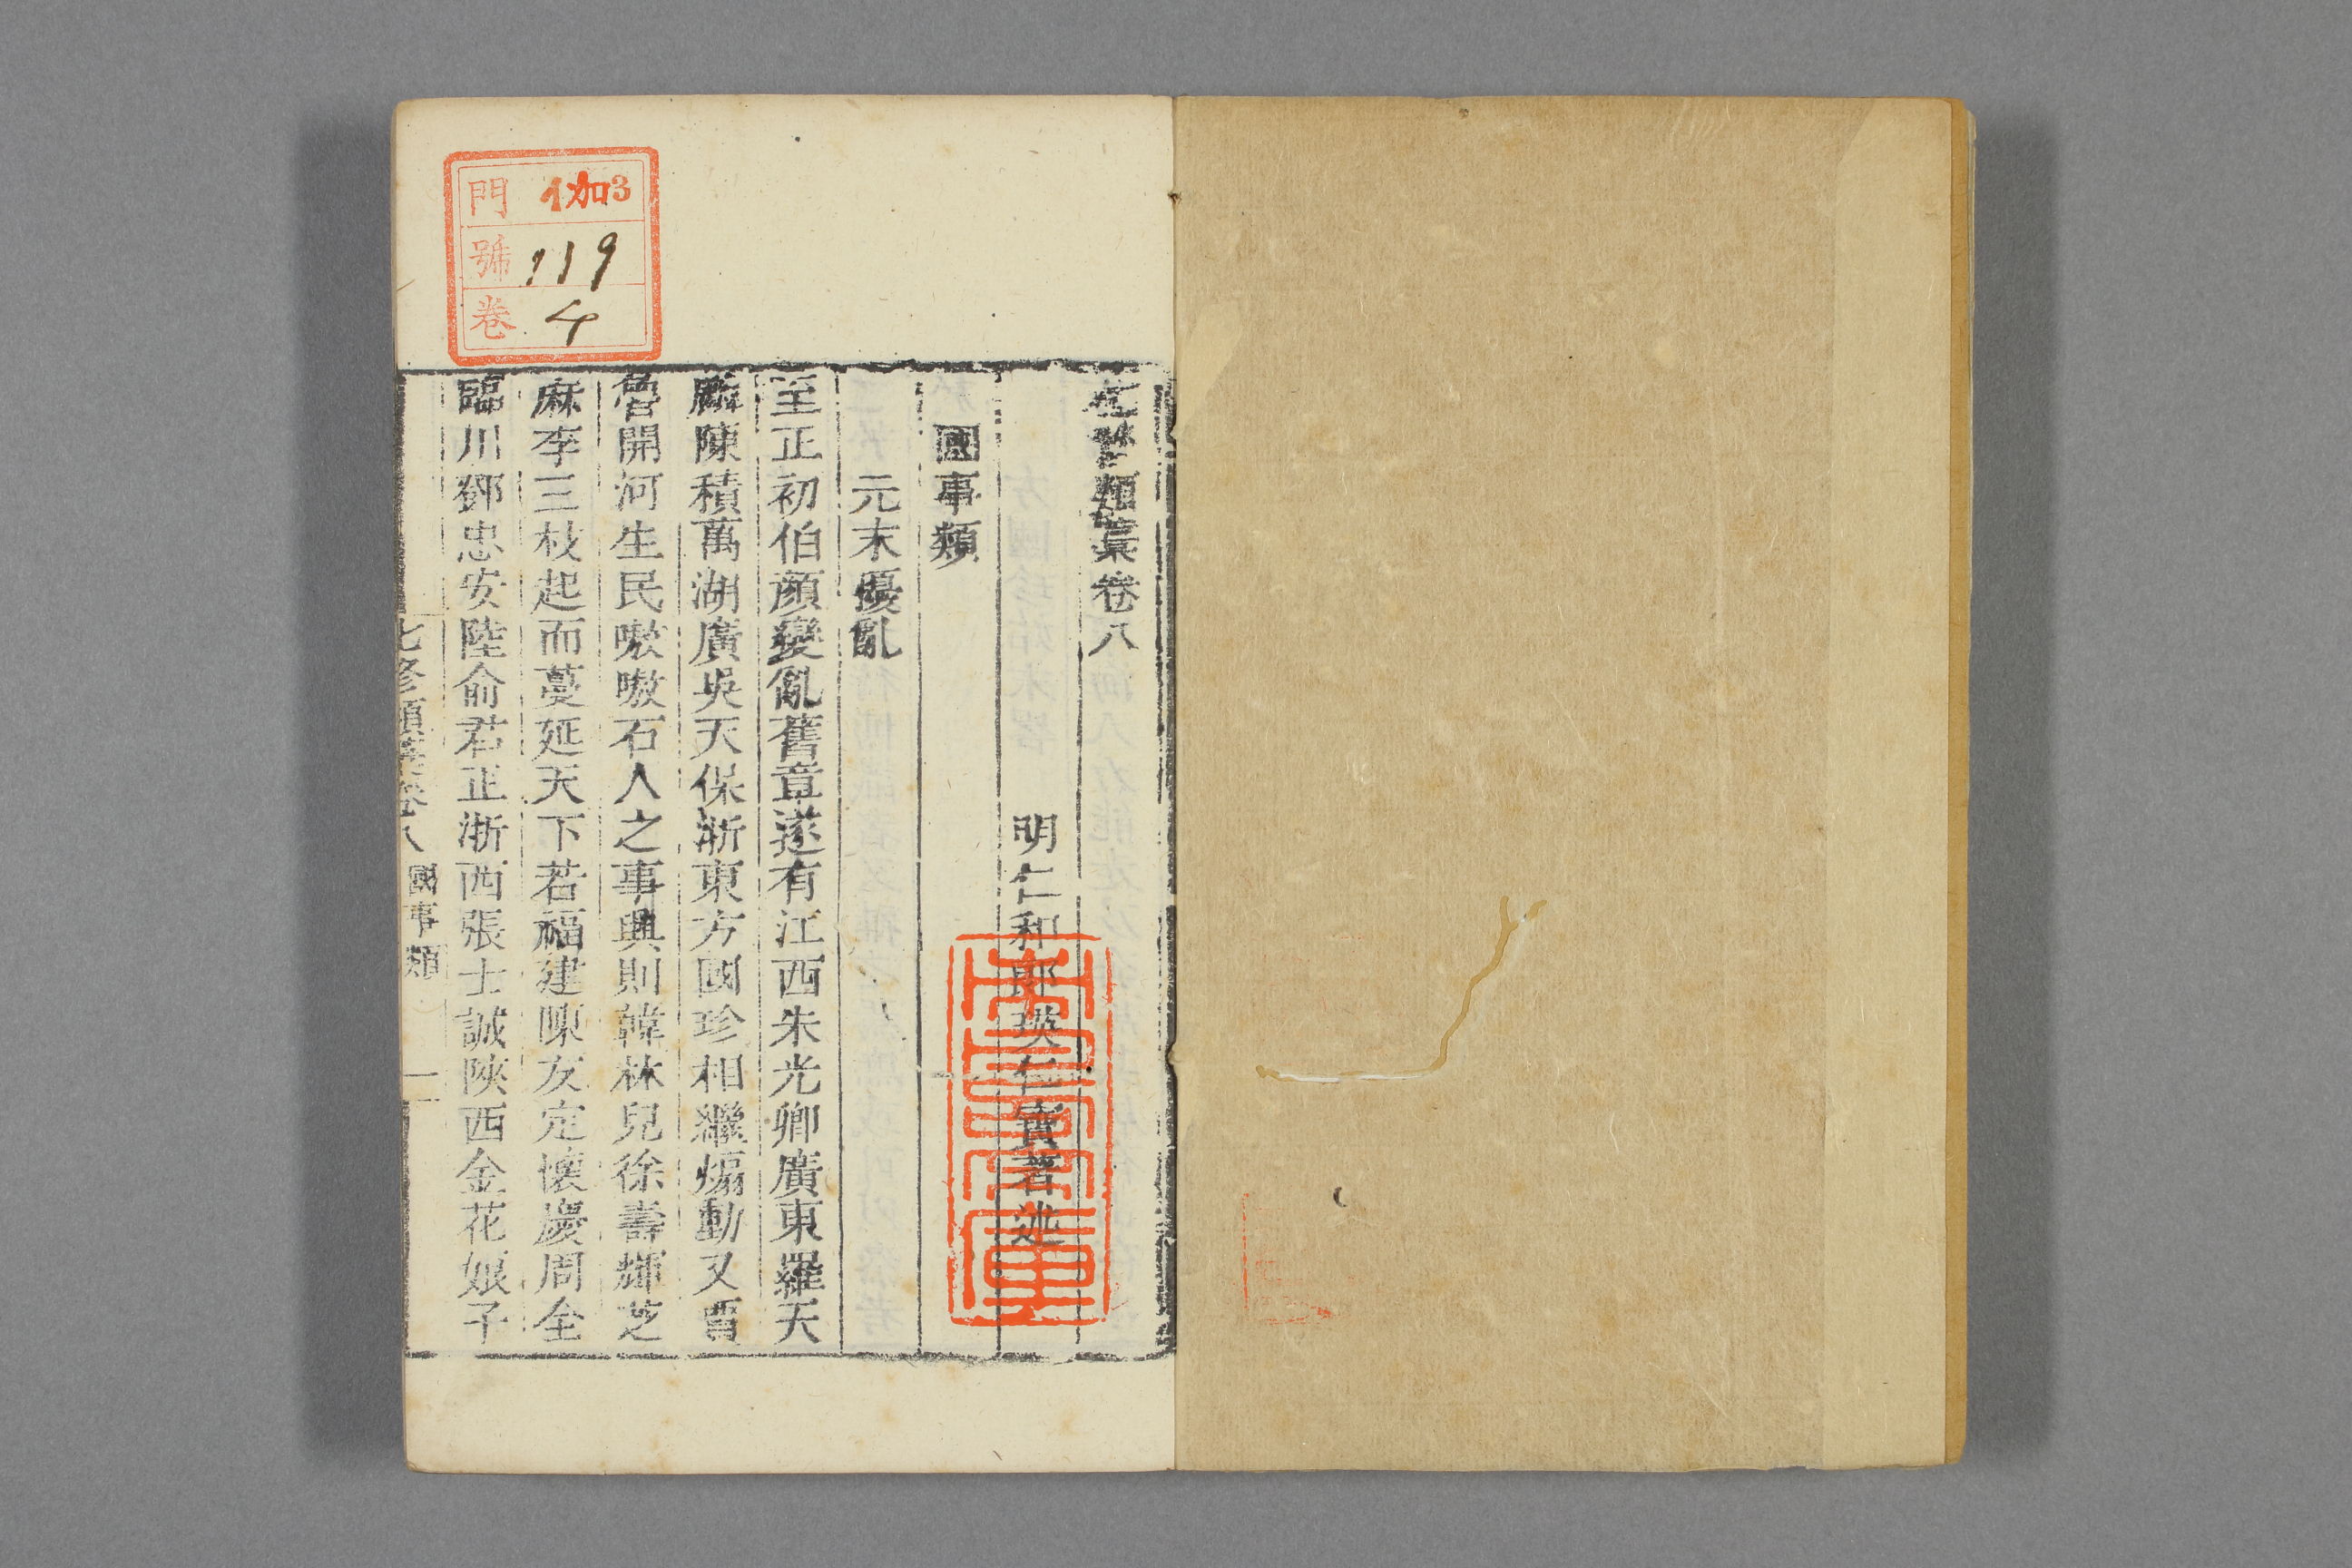 七修類藁卷八
明仁和郎瑛仁寶著述
國事類
元末擾亂
至正初伯顏變亂舊章遂有江西朱光卿廣東羅天
麟陳積萬湖廣吳天保浙東方國珍相繼煽動又賈
魯開河生民嗷嗷石人之事興則韓林兒徐壽輝芝
麻李三枝起而蔓延天下若福建陳友定懷慶周全
臨川鄧忠安陸俞君正浙西張士誠陝西金花娘子
七修類藁卷八 國事類 一
門 イ加3
號 119
卷 4